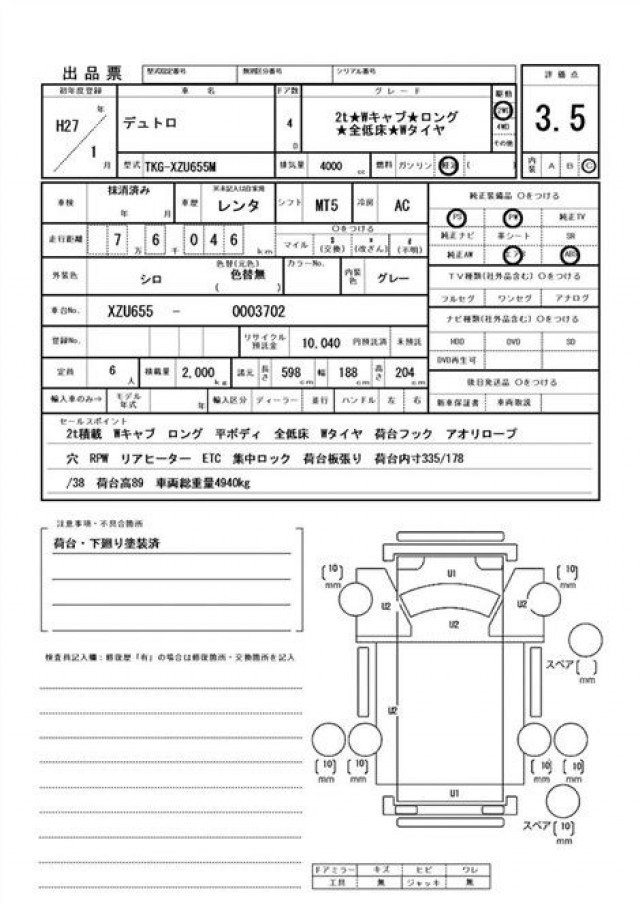 出品票 型式指定番号 類別区分番号 シリアル番号
評価点
初年度登録 車名 ドア数 グレード 駆動
H27 年 / 1 月
デュトロ
4 D
2t★Wキャブ★ロング
★全低床★Wタイヤ
2WD
4WD
その他
3.5
型式 TKG-XZU655M 排気量 4000 cc 燃料 ガソリン 軽油 ( ) 内装 A B C
車検 抹消済み 年 月 車歴 ※未記入は自家用 レンタ シフト MT5 冷房 AC
純正装備品 ○をつける
PS PW 純正TV
走行距離 7 万 6 千 0 4 6 km ○をつける
マイル $ (交換) * (改ざん) # (不明)
純正ナビ 革シート SR
純正AW エアB ABS
外装色 シロ 色替(元色) 色替無 ( ) カラーNo. 内装色 グレー
TV種類(社外品含む) ○をつける
フルセグ ワンセグ アナログ
車台No. XZU655 - 0003702
ナビ種類(社外品含む) ○をつける
登録No. リサイクル預託金 10,040 円預託済 未預託
HDD DVD SD
DVD再生可
定員 6 人 積載量 2,000 kg 諸元 長さ 598 cm 幅 188 cm 高さ 204 cm
後日発送品 ○をつける
輸入車のみ⇒ モデル年式 年 輸入区分 ディーラー 並行 ハンドル 左 右
新車保証書 車両取説
セールスポイント
2t積載 Wキャブ ロング 平ボディ 全低床 Wタイヤ 荷台フック アオリロープ
穴 RPW リアヒーター ETC 集中ロック 荷台板張り 荷台内寸335/178
/38 荷台高89 車両総重量4940kg
注意事項・不具合箇所
荷台・下廻り塗装済
検査員記入欄:修復歴「有」の場合は修復箇所・交換箇所を記入
[10] mm
U1
[10] mm
U2
U2
U2
スペア[ ] mm
U2
[10] mm
[10] mm
[10] mm
[10] mm
U1
スペア[10] mm
ドアミラー キズ ヒビ ワレ
工具 無 ジャッキ 無